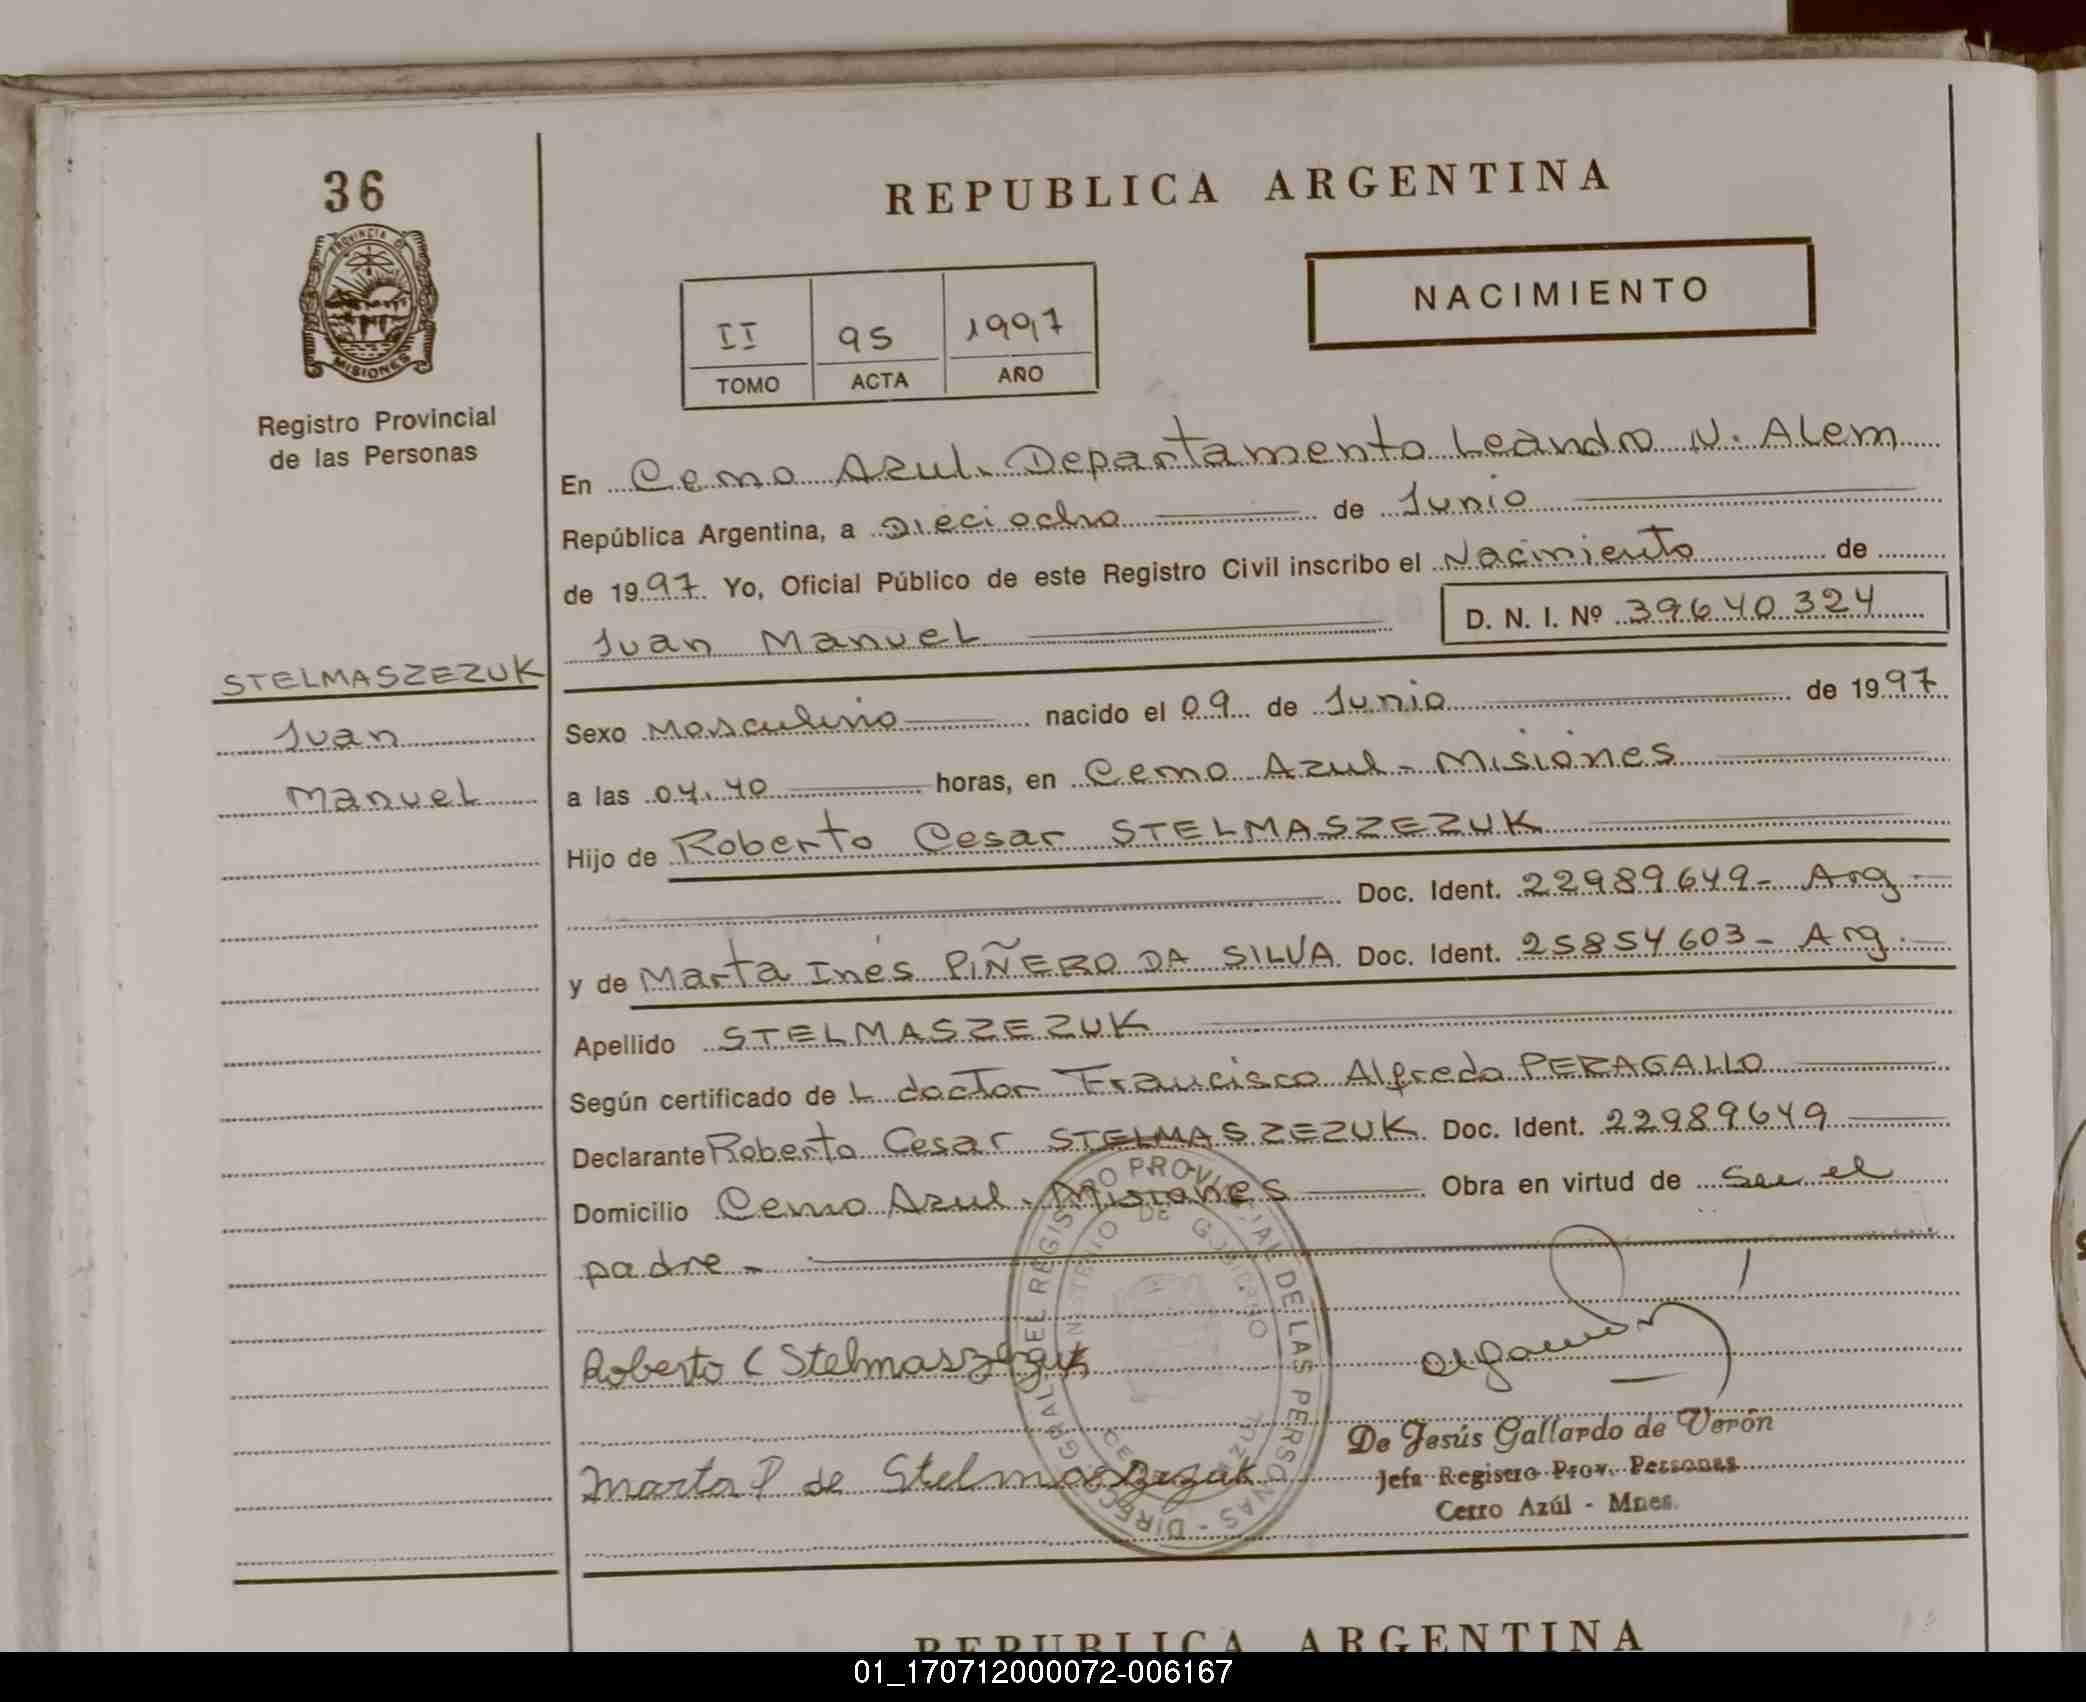 36
PROVINCIA D
MISIONES
Registro Provincial
de las Personas
REPUBLICA ARGENTINA
NACIMIENTO
II 95 1997
TOMO ACTA AÑO
En Cerro Azul. Departamento Leandro N. Alem
República Argentina, a Dieciocho de Junio
de 1997. Yo, Oficial Público de este Registro Civil inscribo el Nacimiento de
Juan Manuel D. N. I. Nº 39640324
STELMASZEZUK
Juan
Manuel
Sexo Masculino nacido el 09 de Junio de 1997
a las 04.40 horas, en Cerro Azul - Misiones
Hijo de Roberto Cesar STELMASZEZUK
Doc. Ident. 22989649- Arg.
y de Marta Inés PIÑERO DA SILVA Doc. Ident. 25854603- Arg.
Apellido STELMASZEZUK
Según certificado de L doctor Francisco Alfredo PERAGALLO
Declarante Roberto Cesar STELMASZEZUK Doc. Ident. 22989649
Domicilio Cerro Azul. Misiones Obra en virtud de ser el
padre -
Roberto C Stelmaszezuk
Marta P de Stelmaszezuk
DIRECC. GRAL. DEL REGISTRO PROVINCIAL DE LAS PERSONAS -
MINISTERIO DE GOBIERNO
CERRO AZUL
De Jesús Gallardo de Verón
Jefa Registro Prov. Personas
Cerro Azúl - Mnes.
REPUBLICA ARGENTINA
01_170712000072-006167